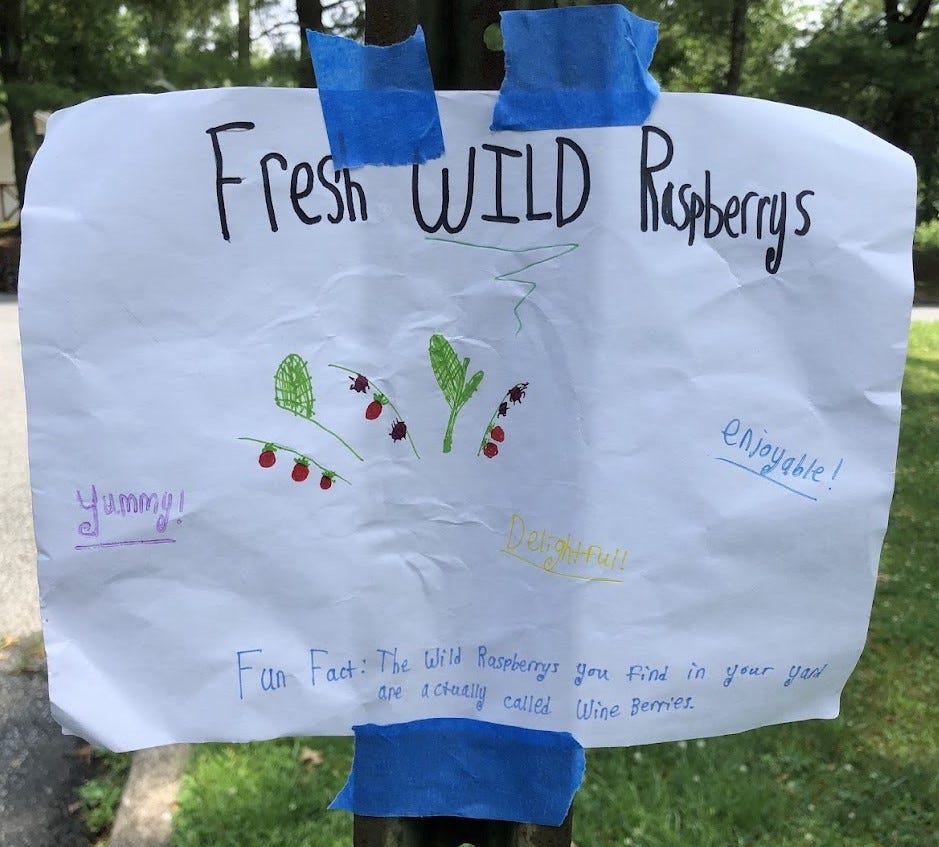 Fresh WILD Raspberrys
enjoyable!
Yummy!
Delightful!
Fun Fact: The Wild Raspberrys you find in your yard
are actually called Wine Berries.